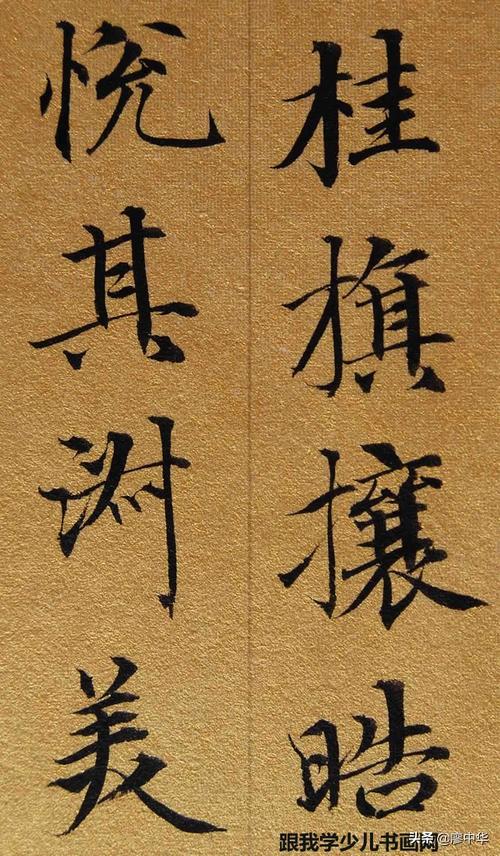 桂旗攘晧
悦其淑美
跟我学少儿书画网
头条@廖中华